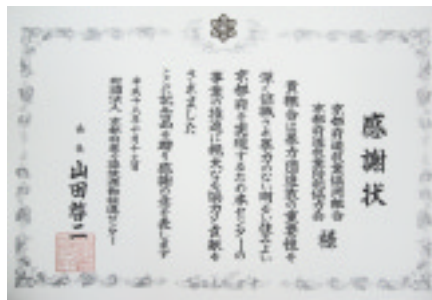 感謝状
京都府遊技業協同組合
京都府遊技業防犯協力会 様
貴組合は暴力団追放の重要性を
深く認識され暴力のない明るい住みよい
京都府を実現するため本センターの
事業の推進に絶大なる協力と貢献を
されました
ここに記念品を贈り感謝の意を表します
平成十八年
財団法人 京都府暴力追放運動推進センター
会長 山田啓二